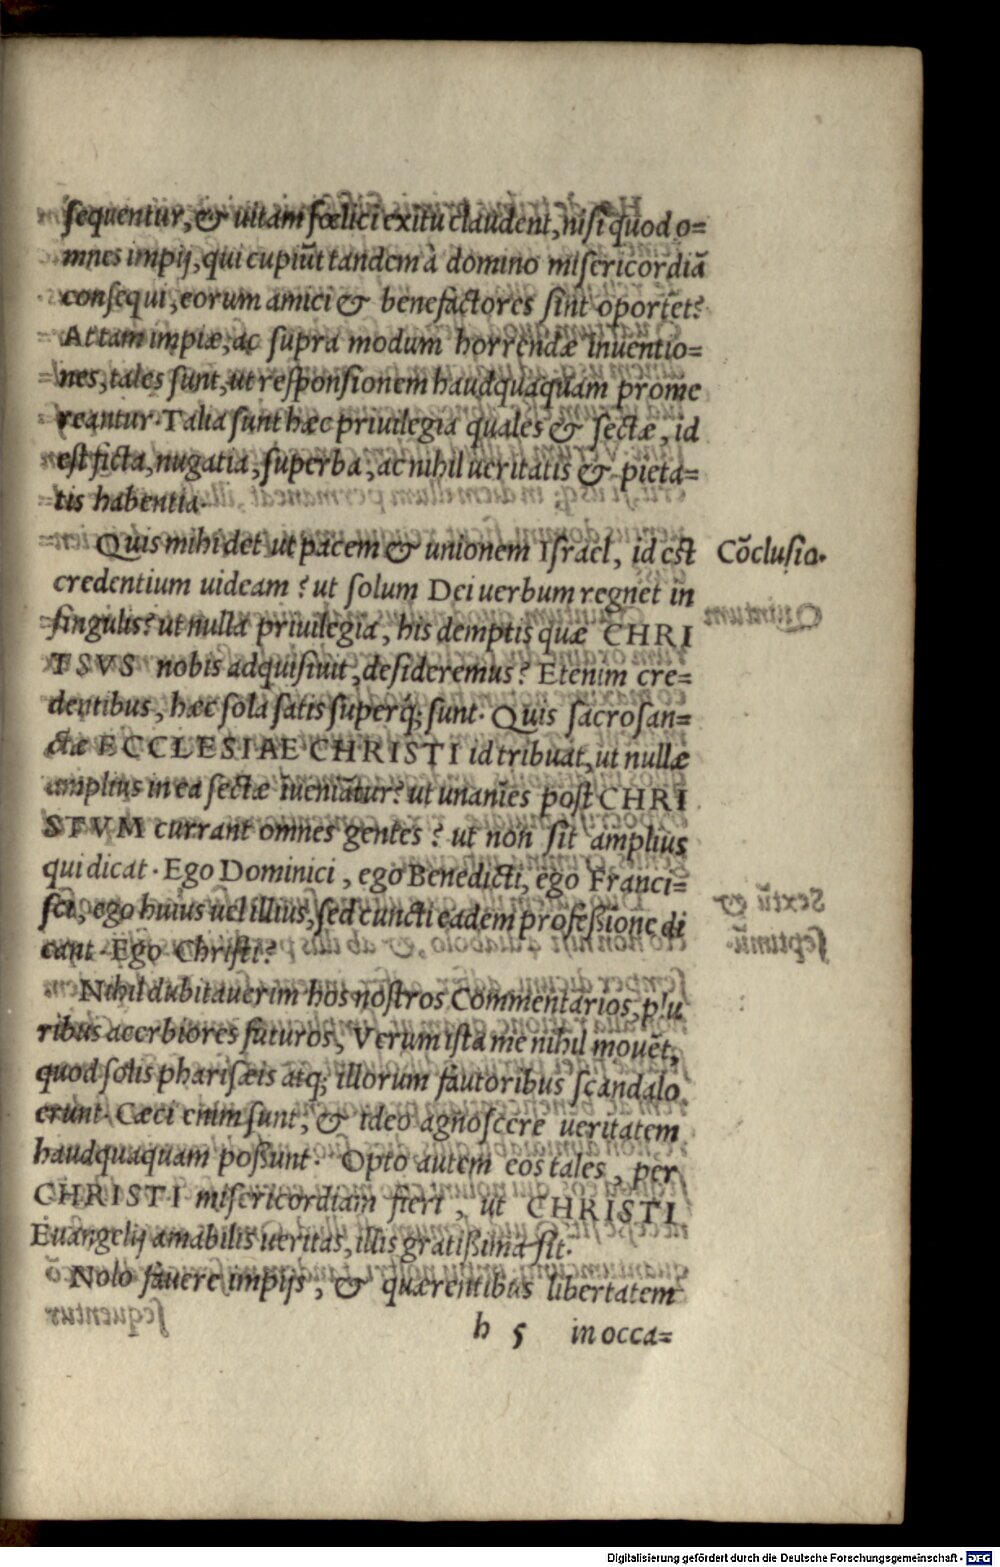 sequentur, & uitam fœlici exitu claudent, nisi quod o=
mnes impij, qui cupiūt tandem à domino misericordiā
consequi, eorum amici & benefactores sint oportet?
At tam impiæ, ac supra modum horrendæ inuentio=
nes, tales sunt, ut responsionem haudquaquam prome
reantur. Talia sunt hæc priuilegia quales & sectæ, id
est ficta, nugatia, superba, ac nihil ueritatis & pieta=
tis habentia.
Quis mihi det ut pacem & unionem Israel, id est
Cōclusio.
credentium uideam? ut solum Dei uerbum regnet in
singulis? ut nulla priuilegia, his demptis quæ CHRI
TSVS nobis adquisiuit, desideremus? Etenim cre=
dentibus, hæc sola satis superq́; sunt. Quis sacrosan=
ctæ ECCLESIAE CHRISTI id tribuat, ut nullæ
amplius in ea sectæ inueniātur? ut unanies post CHRI
STVM currant omnes gentes? ut non sit amplius
qui dicat. Ego Dominici, ego Benedicti, ego Franci=
sci, ego huius uel illius, sed cuncti eadem professione di
cant. Ego Christi?
Nihil dubitauerim hos nostros Commentarios, plu
ribus acerbiores futuros, Verum ista me nihil mouet,
quod solis pharisæis atq; illorum fautoribus scandalo
erunt. Cæci enim sunt, & ideo agnoscere ueritatem
haudquaquam possunt. Opto autem eos tales, per
CHRISTI misericordiam fieri, ut CHRISTI
Euangelij amabilis ueritas, illis gratissima sit.
Nolo fauere impijs, & quærentibus libertatem
h 5 in occa=
Digitalisierung gefördert durch die Deutsche Forschungsgemeinschaft - DFG